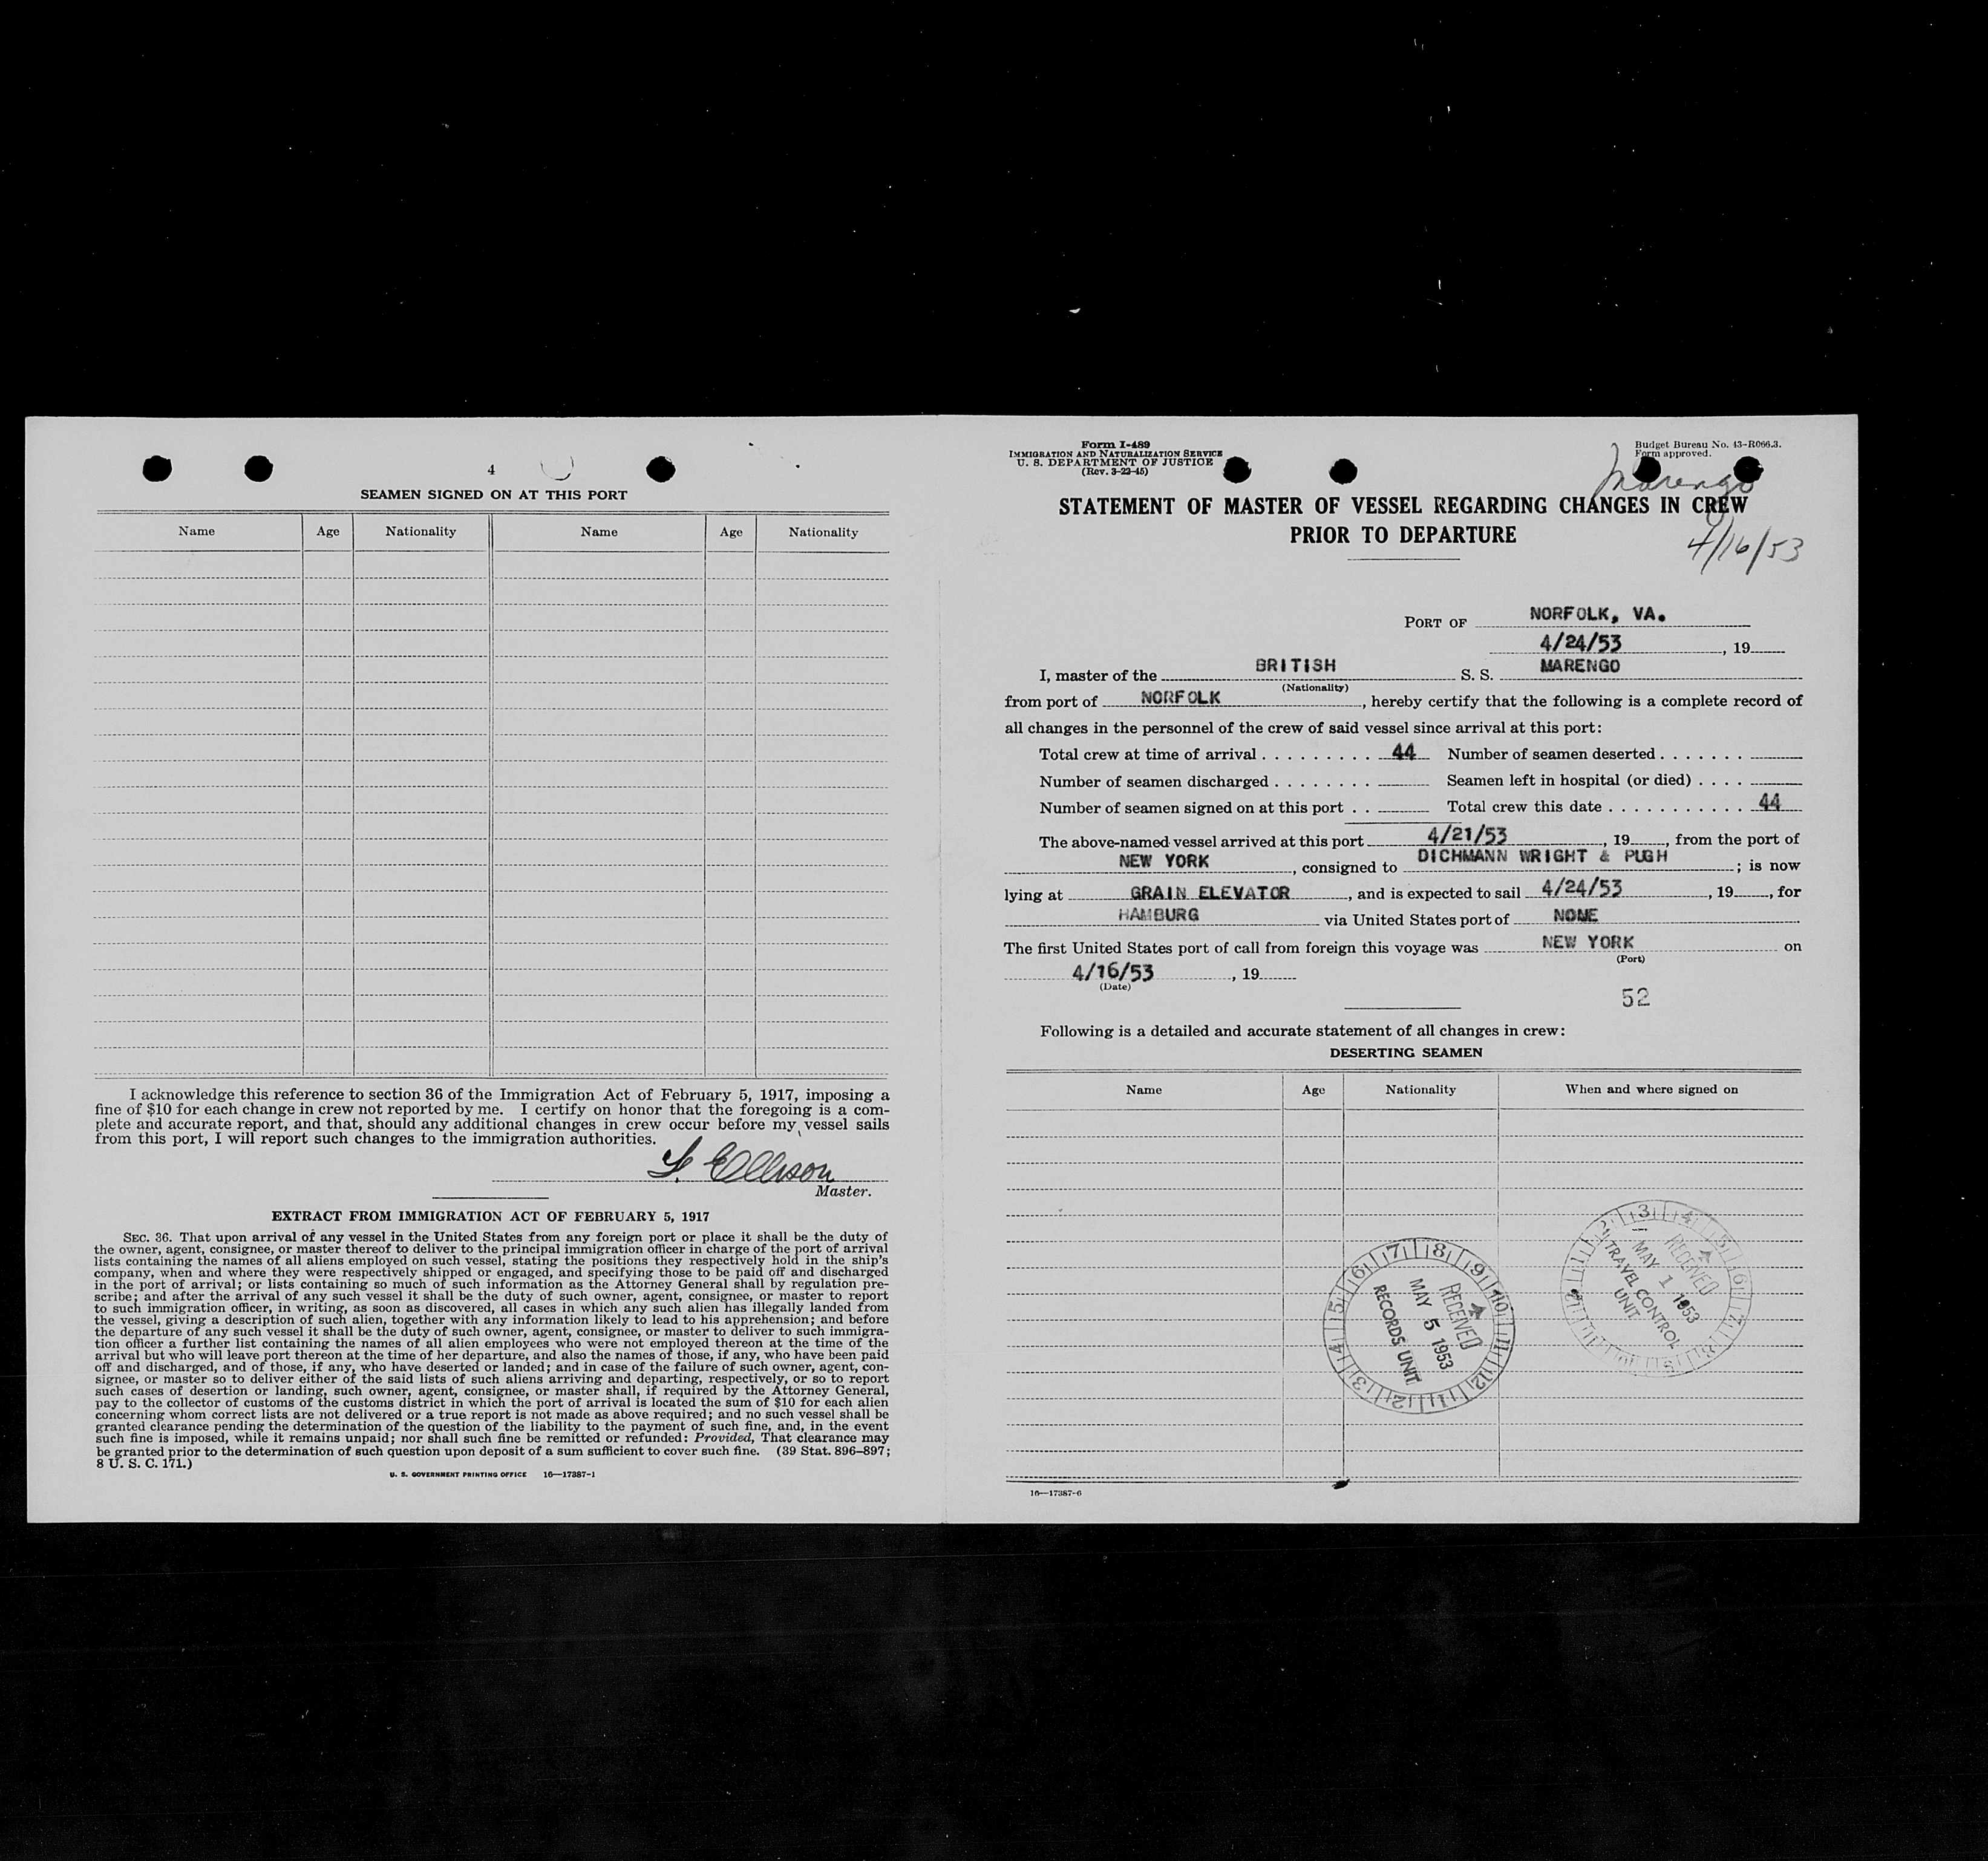 4
SEAMEN SIGNED ON AT THIS PORT
Name Age Nationality Name Age Nationality
I acknowledge this reference to section 36 of the Immigration Act of February 5, 1917, imposing a
fine of $10 for each change in crew not reported by me. I certify on honor that the foregoing is a com-
plete and accurate report, and that, should any additional changes in crew occur before my vessel sails
from this port, I will report such changes to the immigration authorities.
Ellison
Master.
EXTRACT FROM IMMIGRATION ACT OF FEBRUARY 5, 1917
SEC. 36. That upon arrival of any vessel in the United States from any foreign port or place it shall be the duty of
the owner, agent, consignee, or master thereof to deliver to the principal immigration officer in charge of the port of arrival
lists containing the names of all aliens employed on such vessel, stating the positions they respectively hold in the ship's
company, when and where they were respectively shipped or engaged, and specifying those to be paid off and discharged
in the port of arrival; or lists containing so much of such information as the Attorney General shall by regulation pre-
scribe; and after the arrival of any such vessel it shall be the duty of such owner, agent, consignee, or master to report
to such immigration officer, in writing, as soon as discovered, all cases in which any such alien has illegally landed from
the vessel, giving a description of such alien, together with any information likely to lead to his apprehension; and before
the departure of any such vessel it shall be the duty of such owner, agent, consignee, or master to deliver to such immigra-
tion officer a further list containing the names of all alien employees who were not employed thereon at the time of the
arrival but who will leave port thereon at the time of her departure, and also the names of those, if any, who have been paid
off and discharged, and of those, if any, who have deserted or landed; and in case of the failure of such owner, agent, con-
signee, or master so to deliver either of the said lists of such aliens arriving and departing, respectively, or so to report
such cases of desertion or landing, such owner, agent, consignee, or master shall, if required by the Attorney General,
pay to the collector of customs of the customs district in which the port of arrival is located the sum of $10 for each alien
concerning whom correct lists are not delivered or a true report is not made as above required; and no such vessel shall be
granted clearance pending the determination of the question of the liability to the payment of such fine, and, in the event
such fine is imposed, while it remains unpaid; nor shall such fine be remitted or refunded: Provided, That clearance may
be granted prior to the determination of such question upon deposit of a sum sufficient to cover such fine. (39 Stat. 896–897;
8 U. S. C. 171.)
U. S. GOVERNMENT PRINTING OFFICE 16—17387-1
Form I-489
IMMIGRATION AND NATURALIZATION SERVICE
U. S. DEPARTMENT OF JUSTICE
(Rev. 3-22-45)
Budget Bureau No. 43-R066.3.
Form approved.
Marengo
STATEMENT OF MASTER OF VESSEL REGARDING CHANGES IN CREW
PRIOR TO DEPARTURE
4/16/53
PORT OF NORFOLK, VA.
4/24/53, 19
I, master of the BRITISH S. S. MARENGO
(Nationality)
from port of NORFOLK, hereby certify that the following is a complete record of
all changes in the personnel of the crew of said vessel since arrival at this port:
Total crew at time of arrival . . . . . . . . . 44 Number of seamen deserted . . . . . . .
Number of seamen discharged . . . . . . . . Seamen left in hospital (or died) . . . .
Number of seamen signed on at this port . . Total crew this date . . . . . . . . . . . 44
The above-named vessel arrived at this port 4/21/53, 19, from the port of
NEW YORK, consigned to DICHMANN WRIGHT & PUGH; is now
lying at GRAIN ELEVATOR, and is expected to sail 4/24/53, 19, for
HAMBURG via United States port of NONE
The first United States port of call from foreign this voyage was NEW YORK on
(Port)
4/16/53, 19
(Date)
52
Following is a detailed and accurate statement of all changes in crew:
DESERTING SEAMEN
Name Age Nationality When and where signed on
RECEIVED
MAY 5 1953
RECORDS UNIT
RECEIVED
MAY 1 1953
TRAVEL CONTROL
UNIT
16—17387-6